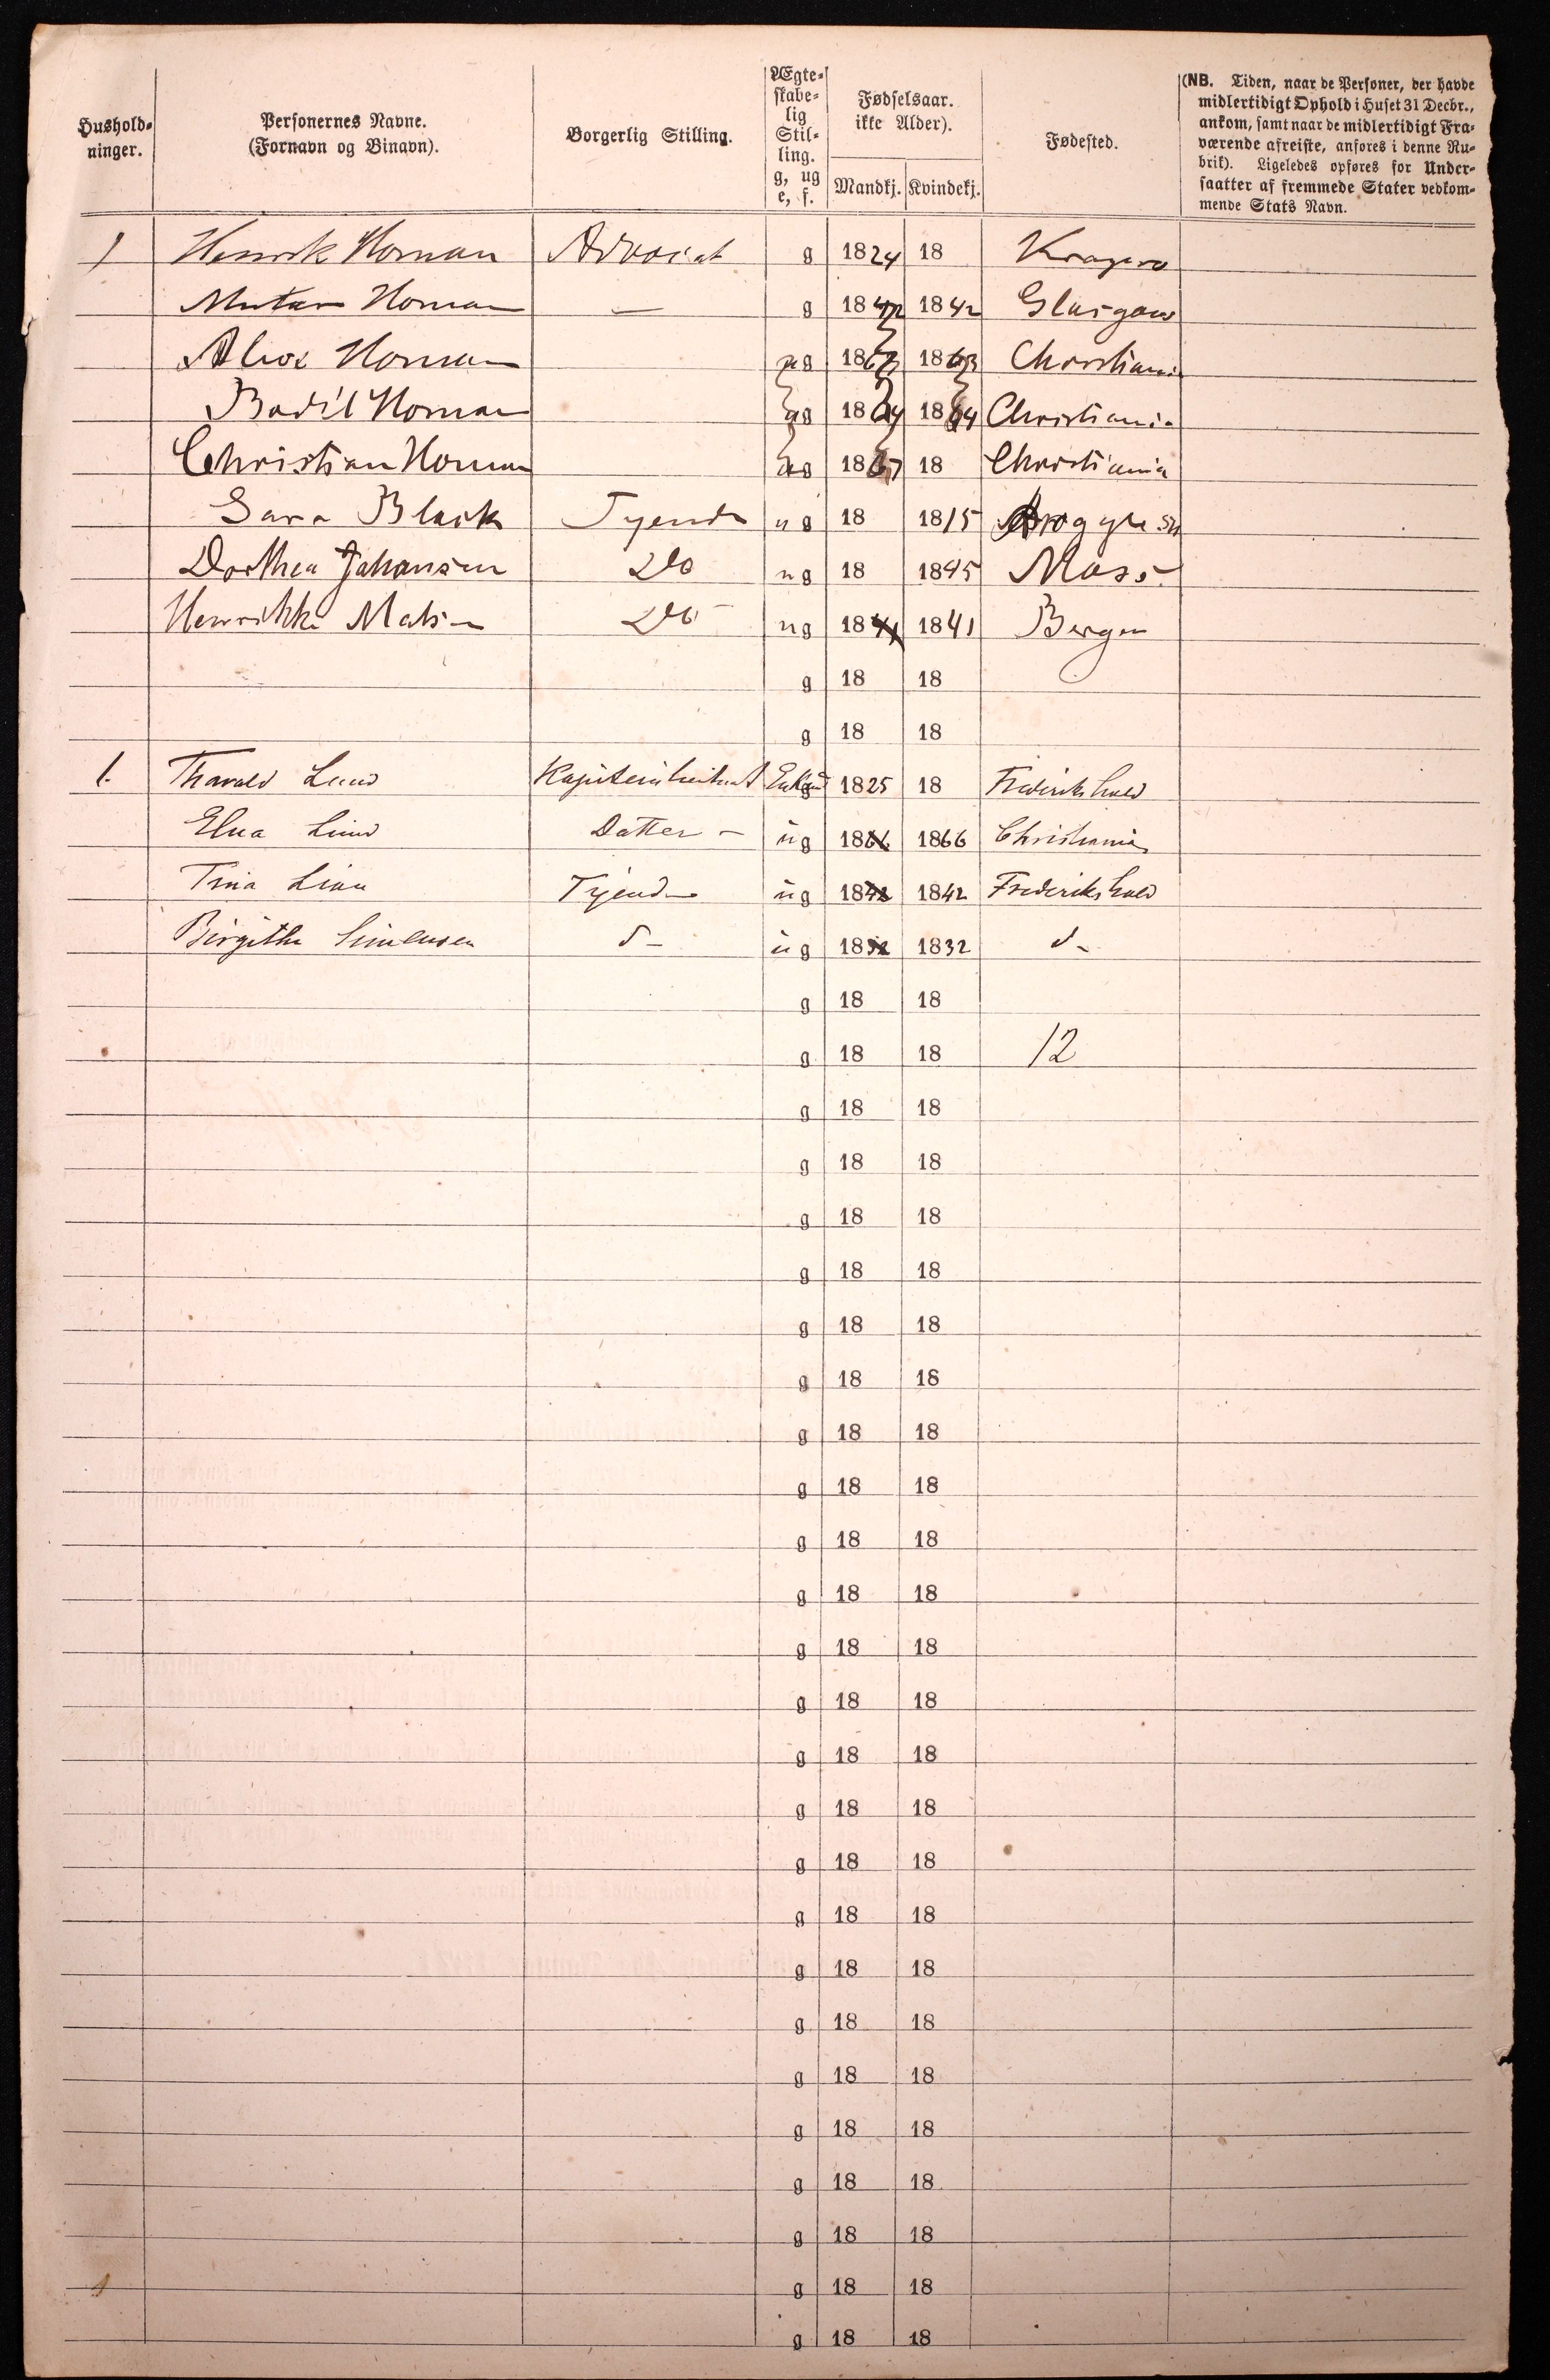 Hushold-
ninger.
Personernes Navne.
(Fornavn og Binavn).
Borgerlig Stilling.
Ægte-
skabe-
lig
Stil-
ling.
g, ug
e, f.
Fødselsaar.
ikke Alder).
Mandkj. Kvindekj.
Fødested.
(NB. Tiden, naar de Personer, der havde
midlertidigt Ophold i Huset 31 Decbr.,
ankom, samt naar de midlertidigt Fra-
værende afreiste, anføres i denne Ru-
brik). Ligeledes opføres for Under-
saatter af fremmede Stater vedkom-
mende Stats Navn.
1 Henrik Homan Advocat g 1824 18 Kragerø
Homan — g 1842 1842 Glasgow
Alice Homan ug 1863 1863 Christiania
Bodil Homan ug 1864 1864 Christiania
Christian Homan ug 1867 18 Christiania
Sara Black Tyende ug 18 1815
Dorthea Johansen Do ug 18 1845 Moss
Henrikke Do ug 1841 1841 Bergen
g 18 18
g 18 18
1. Thorvald Lund Enkem 1825 18 Frederikshald
Elna Lund Datter – ug 1866 1866 Christiania
Tina Tyende ug 1842 1842 Frederikshald
Birgithe Simensen d– ug 1832 1832 d–
g 18 18
g 18 18 12
g 18 18
g 18 18
g 18 18
g 18 18
g 18 18
g 18 18
g 18 18
g 18 18
g 18 18
g 18 18
g 18 18
g 18 18
g 18 18
g 18 18
g 18 18
g 18 18
g 18 18
g 18 18
g 18 18
g 18 18
g 18 18
g 18 18
g 18 18
g 18 18